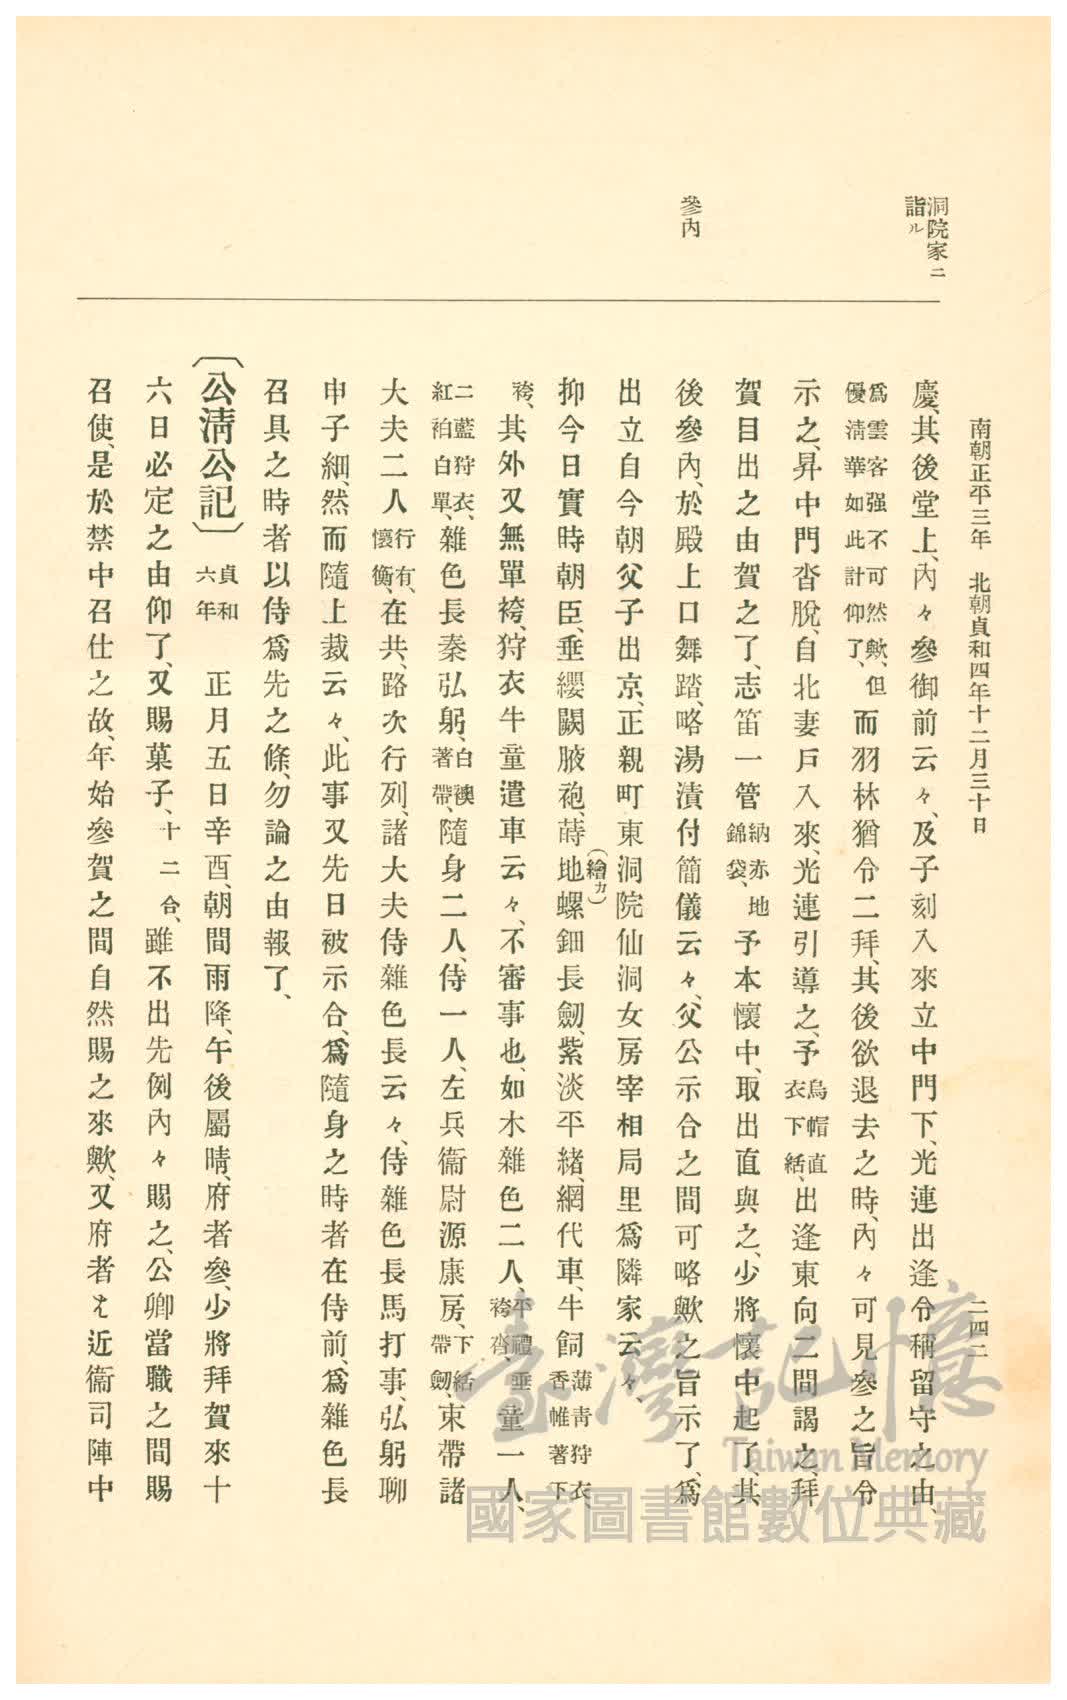 南朝正平三年　北朝貞和四年十二月三十日
二四二
洞院家ニ
詣ル
參內
慶、其後堂上、內々參御前云々、及子刻入來立中門下、光連出逢、令稱留守之由、
爲雲客强不可然歟、但
優淸華如此計仰了、
而羽林猶令二拜、其後欲退去之時、內々可見參之旨令
示之、昇中門沓脫、自北妻戶入來、光連引導之、予
烏帽直
衣下結、
出逢東向二間謁之、拜
賀目出之由賀之了、志笛一管
納赤地
錦袋、
予本懷中、取出直與之、少將懷中起了、其
後參內、於殿上口舞踏、略湯漬付簡儀云々、父公示合之間可略歟之旨示了、爲
出立自今朝父子出京、正親町東洞院仙洞女房宰相局里爲隣家云々、
抑今日實時朝臣、垂纓闕腋袍、蒔地螺鈿長劒、紫淡平緖、網代車、牛飼
薄靑狩衣、
香帷著下
(繪カ)
袴、
其外又無單袴、狩衣牛童遣車云々、不審事也、如木雜色二人、
平禮垂
袴沓、
童一人、
二藍狩衣、
紅袙白單、
雜色長秦弘躬、
白襖
著帶、
隨身二人、侍一人、左兵衞尉源康房、
下結
帶劒、
束帶諸
大夫二人
行有、
懷衡、
在共、路次行列、諸大夫侍雜色長云々、侍雜色長馬打事、弘躬聊
申子細、然而隨上裁云々、此事又先日被示合、爲隨身之時者在侍前、爲雜色長
召具之時者以侍爲先之條、勿論之由報了、
〔公淸公記〕
貞和
六年
正月五日辛酉、朝間雨降、午後屬晴、府者參、少將拜賀來十
六日必定之由仰了、又賜菓子、
十二
合、
雖不出先例內々賜之、公卿當職之間賜
召使、是於禁中召仕之故、年始參賀之間自然賜之來歟、又府者モ近衞司陣中
臺灣記憶
Taiwan Memory
國家圖書館數位典藏